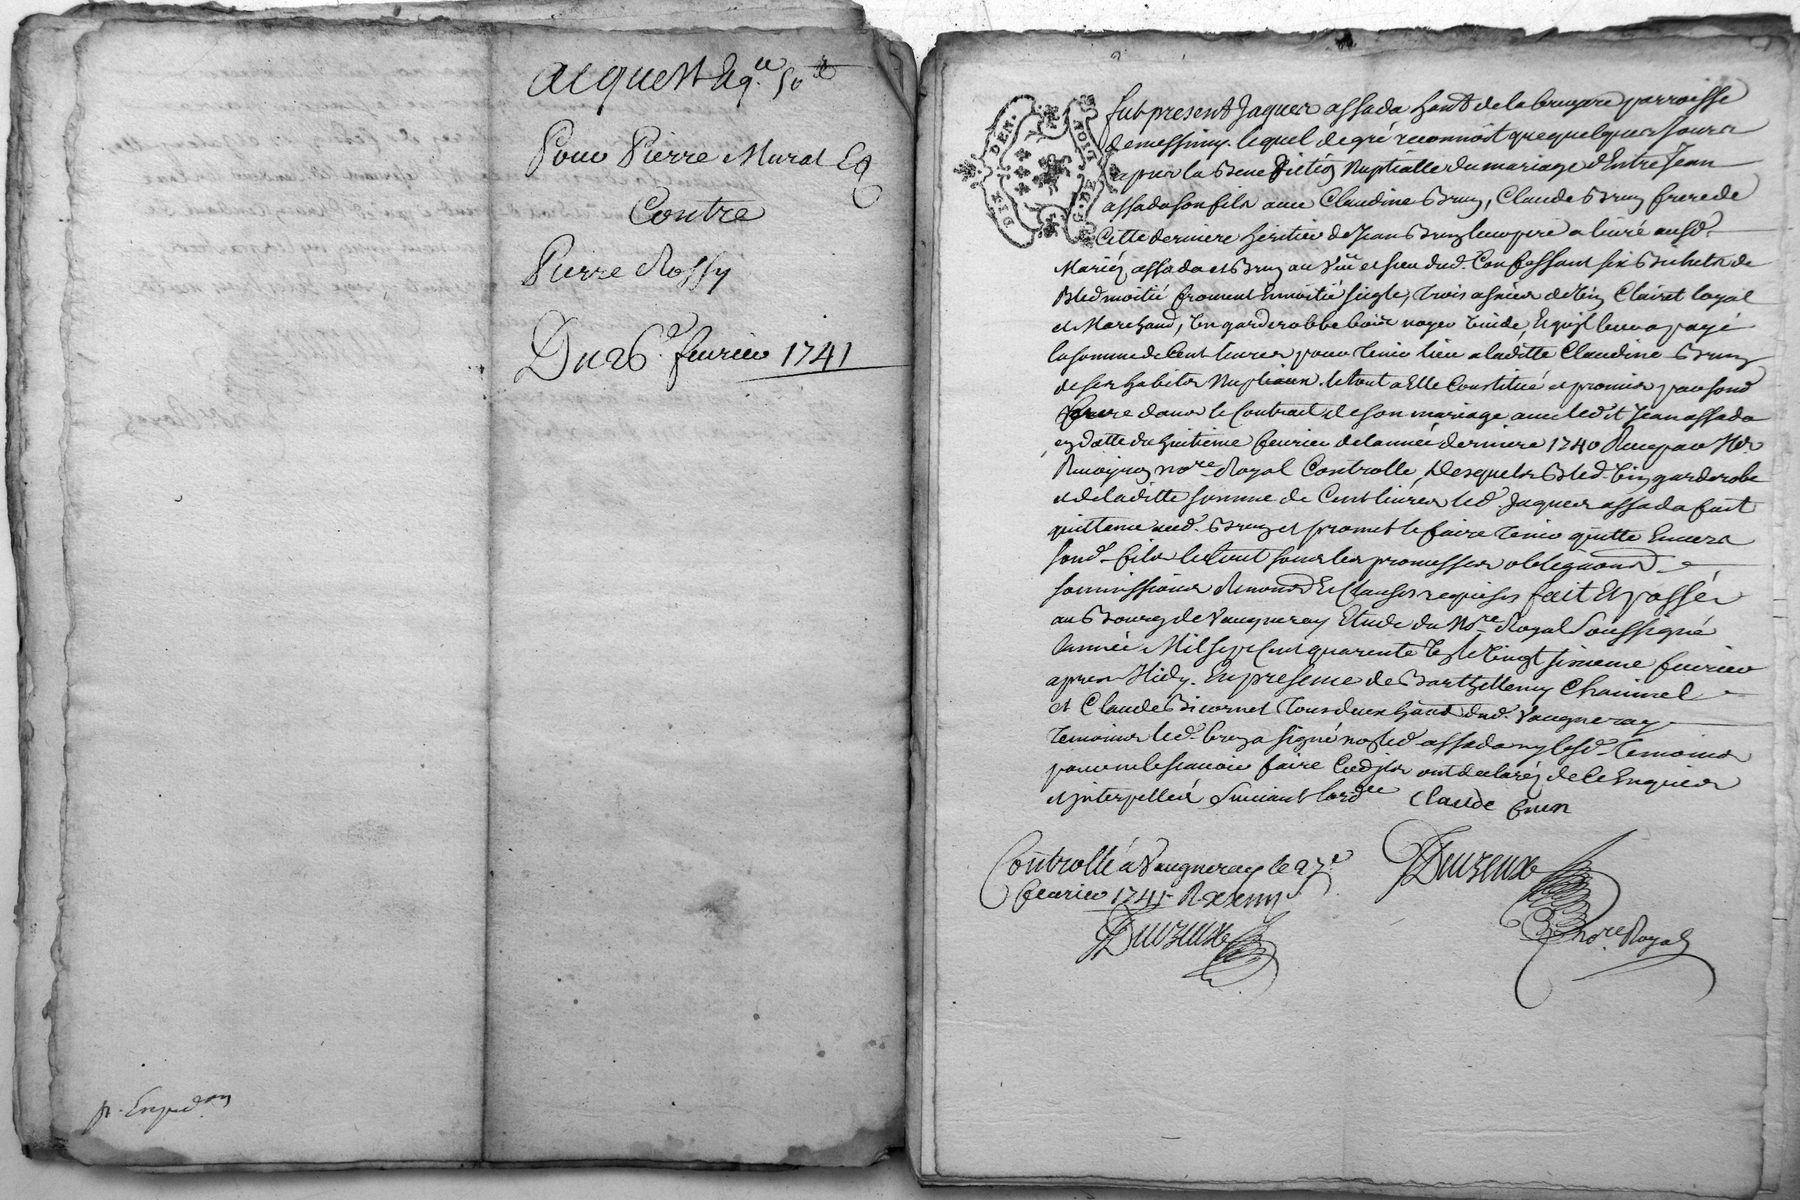 acquest Eq.ce 50 lt
Pour Pierre Murat Eq
Contre
Pierre Rossy
Du 26.e feurier 1741
pr. Exped.on
GEN. DE LION
DIX DEN.
fut present Jaques assada hant de la bruyare parroisse
de messimy. lequel de gré reconnoit que quelques jours
apres la Benediction Nuptialle du mariage d'Entre Jean
assada son fils auec Claudine Brun, Claude Brun frere de
Cette derniere heritier de Jean Brun leur pere a liuré ausd.
Mariéz assada et Brun au Veu et sceu dud. Confessant six Bichets de
Bled moitié froment Emoitié siegle, trois asnées de Vin Clairet loyal
et Marchand, Vn garderobbe bois noyer Vuide, Equ'il leur a payé
la somme de Cent liures pour tenir lieu a laditte Claudine Brun
de ses habits Nuptiaux. le tout a Elle Constitué et promis par sond
frere dans le Contrait de son mariage auec led.t Jean assada
en datte du huitieme feurier de l'année derniere 1740 Receu par Me
nore Royal Controllé, Desquels Bled Vin garderobe
et de laditte somme de Cent liures led. Jaques assada fait
quittance aud. Brun et promet le faire tenir quitte Enuers
sond. fils le tout sous les promesses obligaons
soumissions Renonons Et Clauses requises fait Et passé
au Bourg de Vaugneray Etude du Nore Royal Soussigné
l'année Mil sept Cent quarente Vn le Vingt sixieme feurier
apres Midy. En presence de Barthellemy Chaumel
et Claude Bicornet tous deux hans dud. Vaugneray
temoins led. brun a signé non led. assada ny lesd. temoins
pour ne le scauoir faire Ce qu'ils ont declaréz de Ce Enquis
et Interpellés Suiuant lordce Claude brun
Controllé a Vaugneray le 27.e
feurier 1741 R
Duvzeux
Duvzeux
nore. Royal